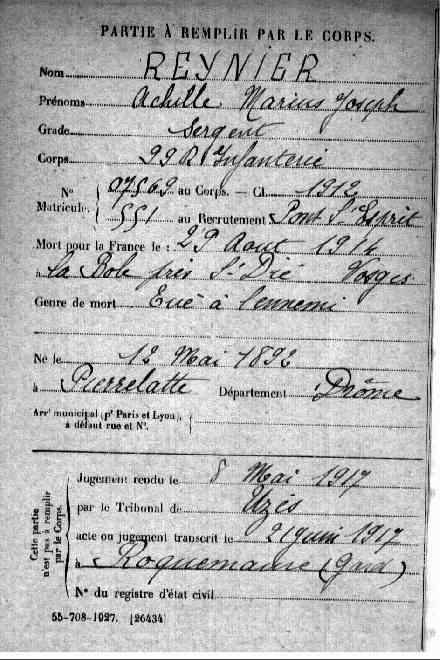 PARTIE À REMPLIR PAR LE CORPS.
Nom REYNIER
Prénoms Achille Marius Joseph
Grade Sergent
Corps R Infanterie
N° 07569 au Corps. — Cl. 1912
Matricule. 551 au Recrutement Pont St Esprit
Mort pour la France le 29 Aout 1914
à la près St Dié Vosges
Genre de mort Tué à l'ennemi
Né le 12 Mai 1892
à Pierrelatte Département Drôme
Arrt municipal (pr Paris et Lyon),
à défaut rue et N°.
Cette partie
n'est pas à remplir
par le Corps.
Jugement rendu le 8 Mai 1917
par le Tribunal de Uzès
acte ou jugement transcrit le 2 juin 1917
à Roquemaure (Gard)
N° du registre d'état civil
55-708-1927. [26434]